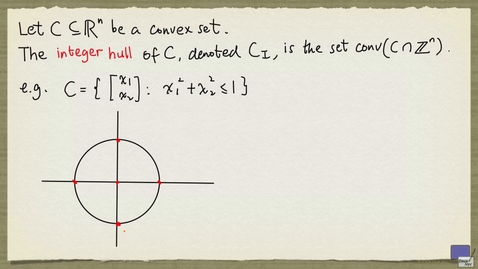 Let C ⊆ ℝⁿ be a convex set.
The integer hull of C, denoted C_I, is the set conv(C ∩ ℤⁿ).
e.g. C = { [x₁ x₂] : x₁² + x₂² ≤ 1 }